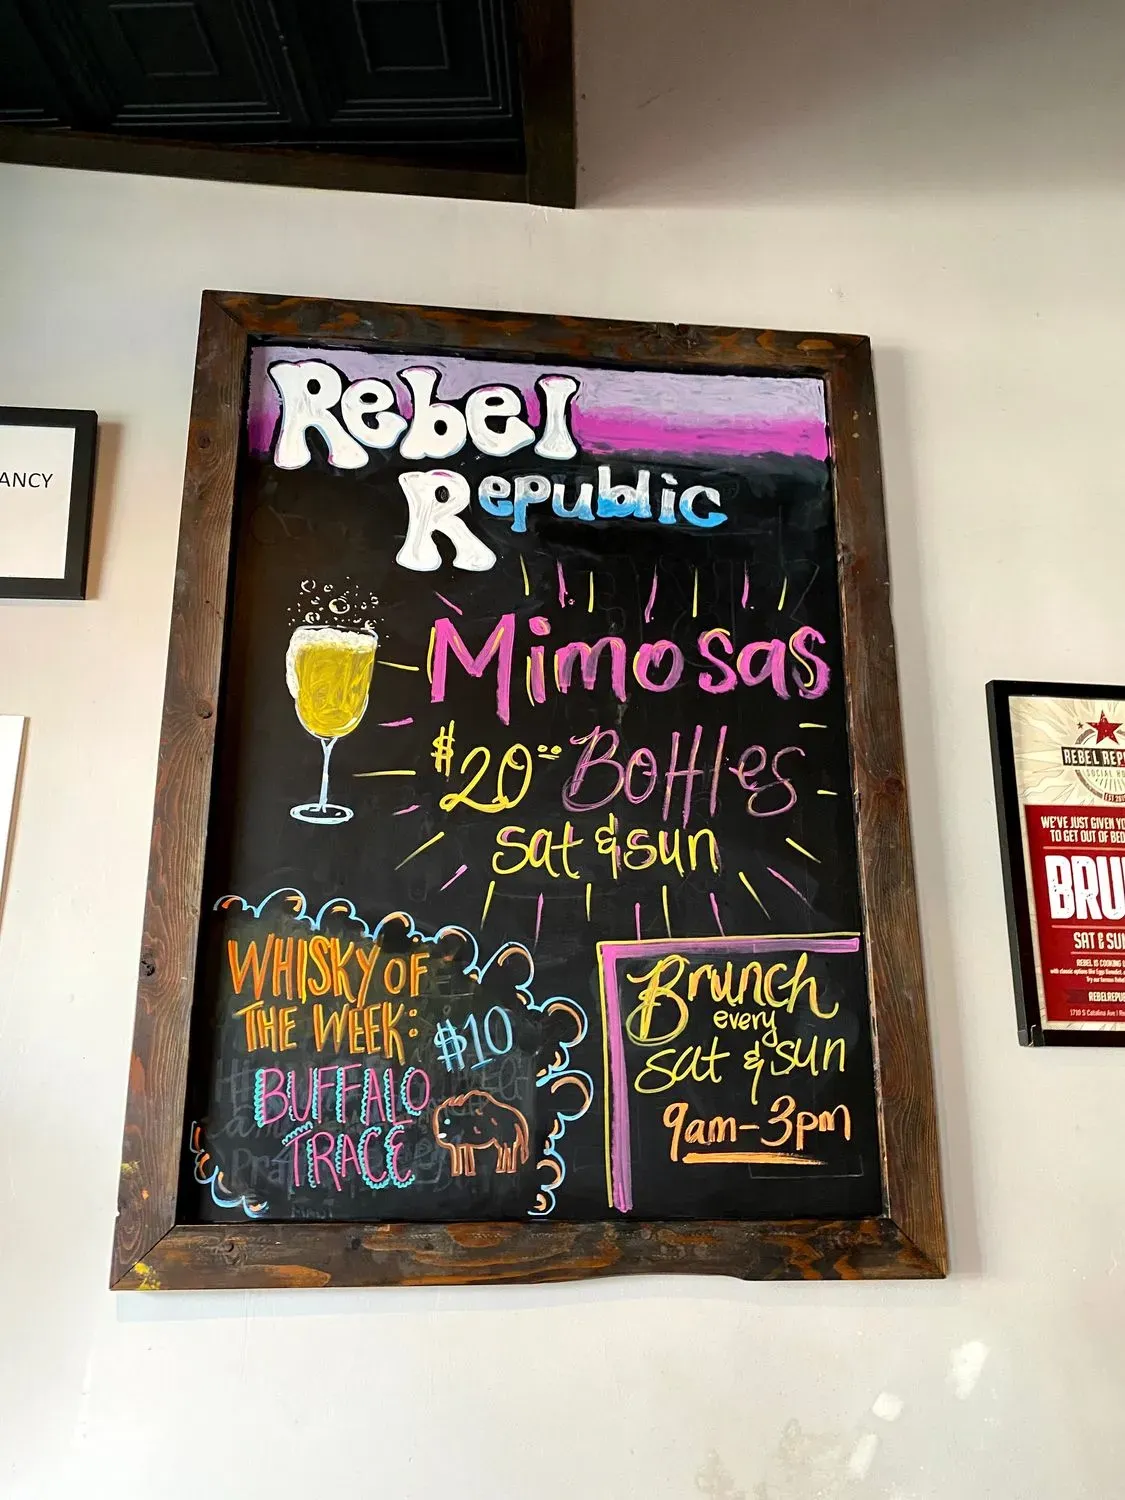 Rebel
Republic
Mimosas
$20.00 Bottles
sat & sun
WHISKY OF
THE WEEK:
$10
BUFFALO
TRACE
Brunch
every
sat & sun
9am-3pm
ANCY
REBEL REP
SOCIAL HO
WE'VE JUST GIVEN YO
TO GET OUT OF BED
BRU
SAT & SU
REBEL IS COOKING
REBELREPU
1710 S Catalina Ave | R